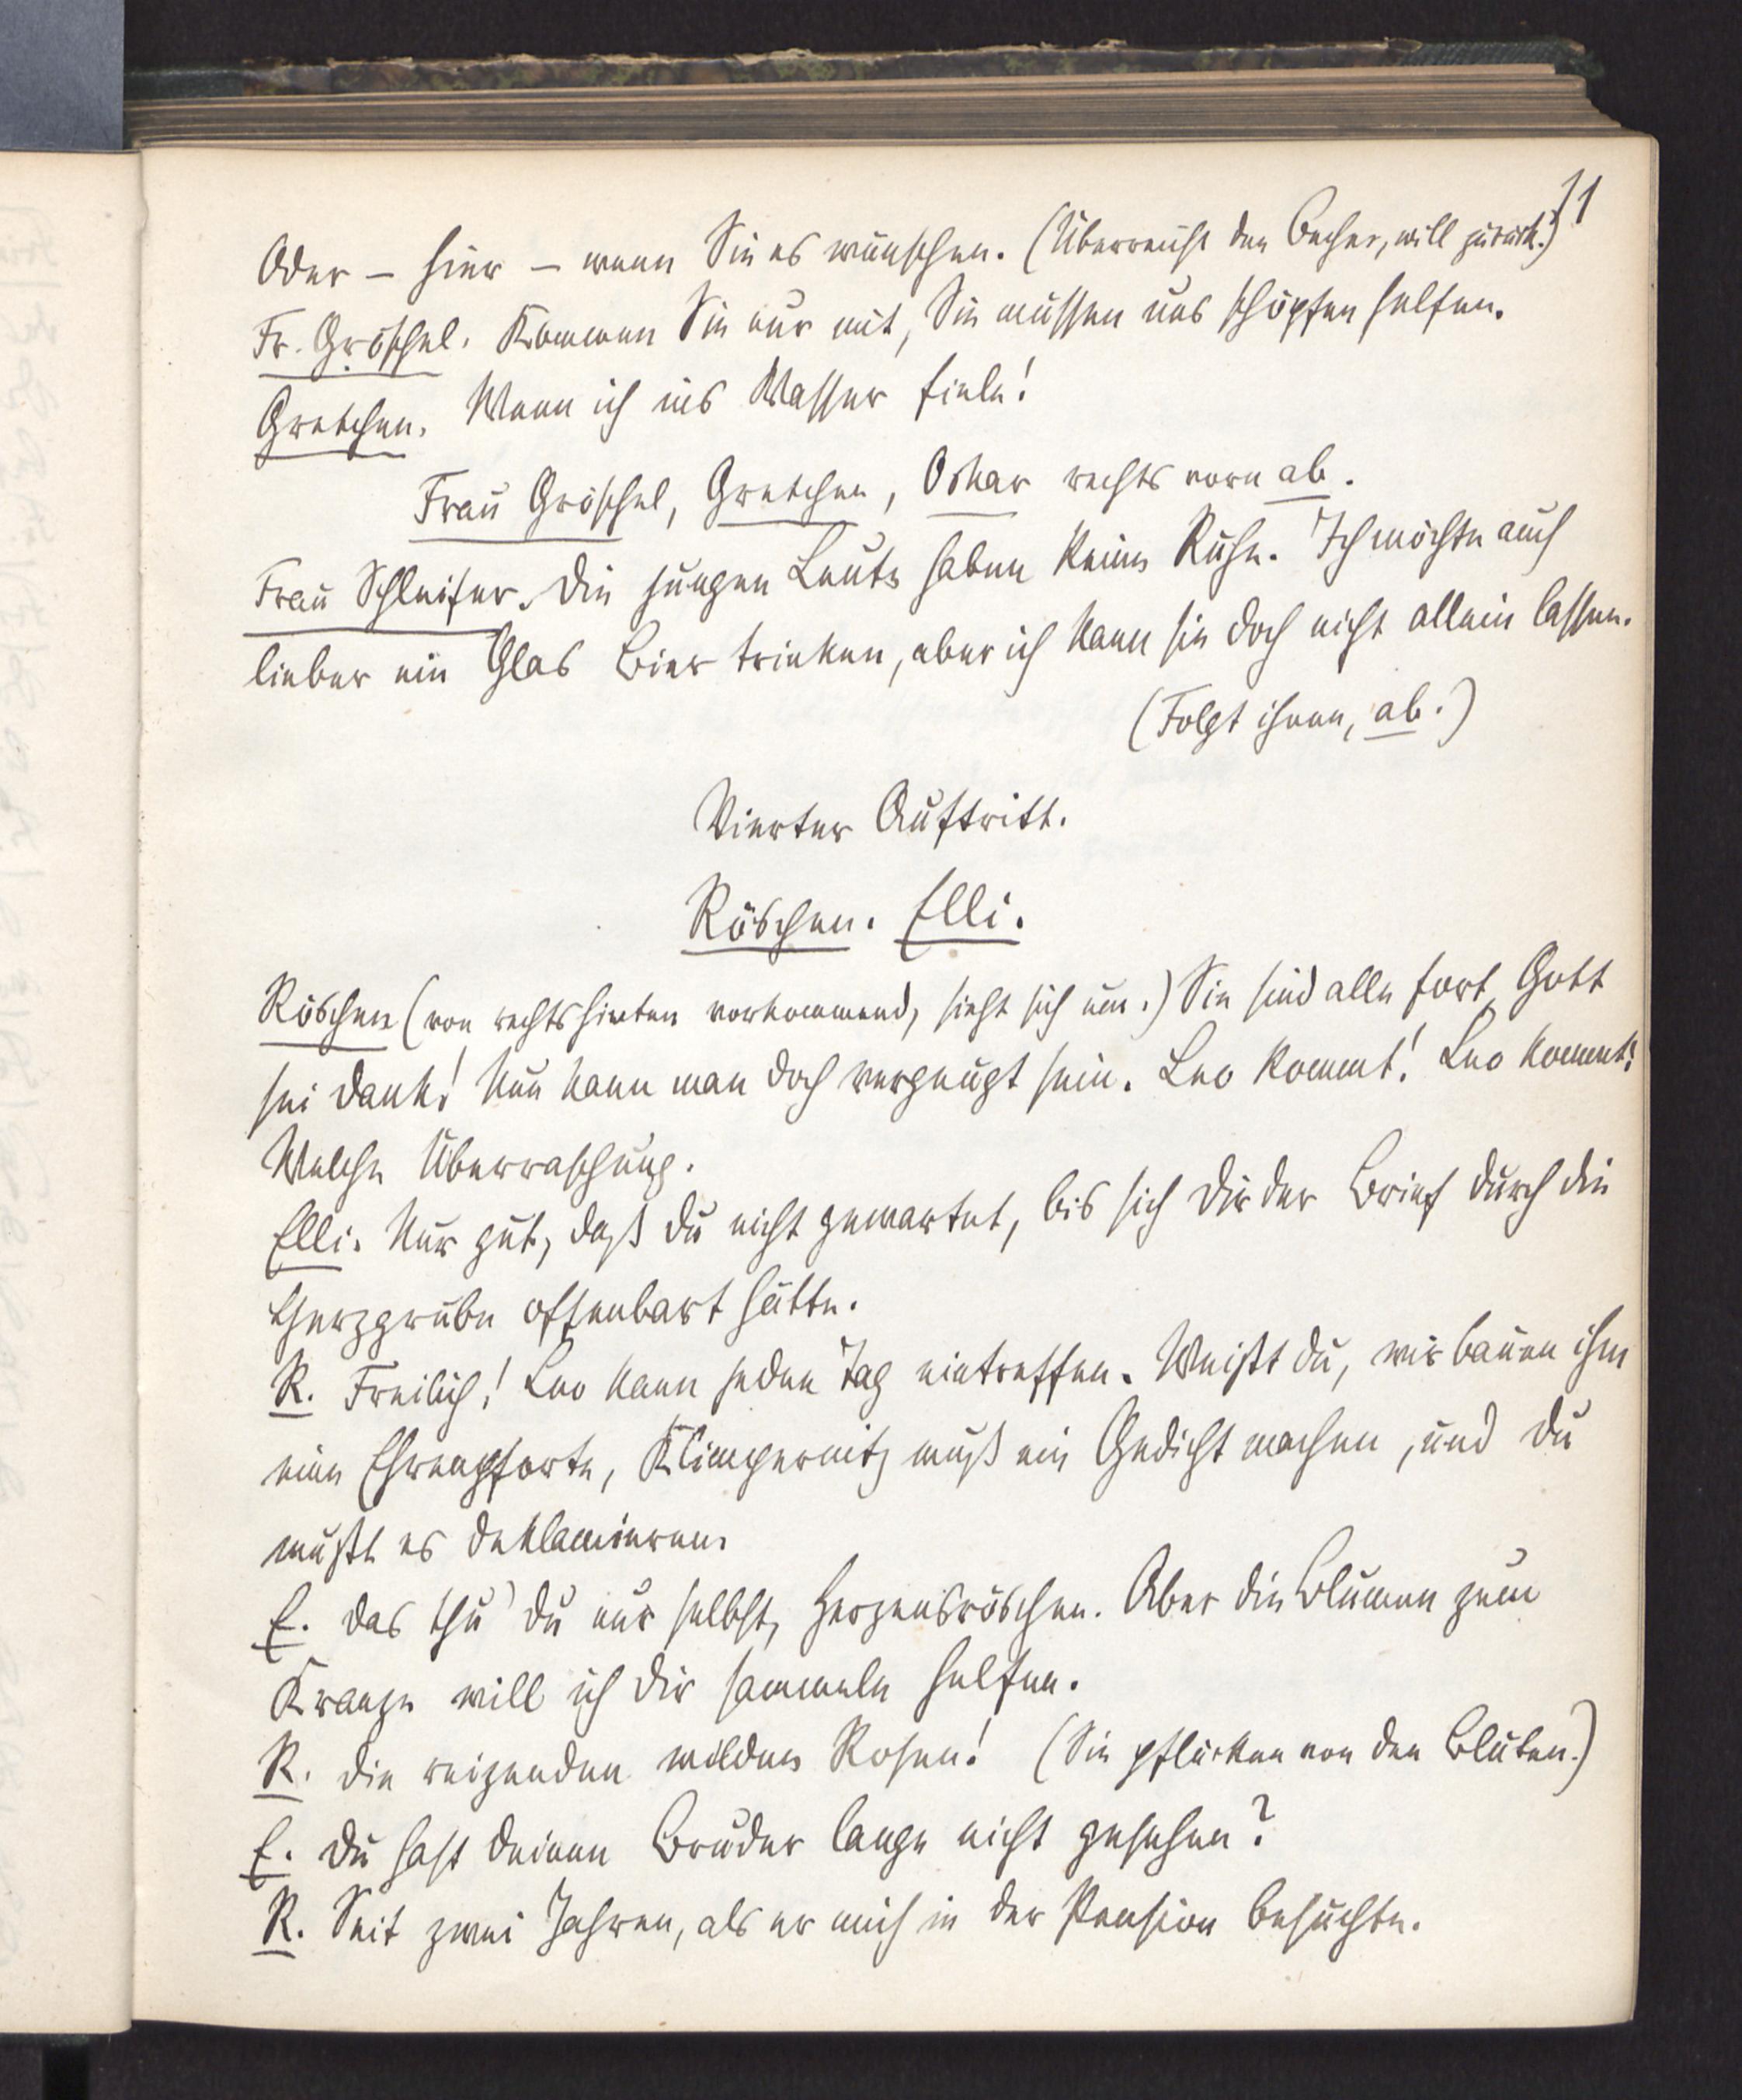 11
Oder – hier – wenn Sie es wünschen. (Überreicht den Becher, will zurück.)
Fr. Gröschel. Kommen Sie nur mit, Sie müssen uns schöpfen helfen.
Gretchen. Wenn ich ins Wasser fiele!
Frau Gröschel, Gretchen, Oskar rechts vorn ab.
Frau Schleifer. Die jungen Leute haben keine Ruhe. Ich möchte auch
lieber ein Glas Bier trinken, aber ich kann sie doch nicht allein lassen.
(Folgt ihnen, ab.)
Vierter Auftritt.
Röschen. Elli.
Röschen (von rechts hinten vorkommend, sieht sich um.) Sie sind alle fort, Gott
sei Dank! Nun kann man doch vergnügt sein. Leo kommt! Leo kommt!
Welche Überraschung.
Elli. Nur gut, daß du nicht gewartet, bis sich dir der Brief durch die
Herzgrube offenbart hätte.
R. Freilich! Leo kann jeden Tag eintreffen. Weißt du, wir bauen ihm
eine Ehrenpforte, Klimpernitz muß ein Gedicht machen, und du
mußt es deklamieren.
E. Das thu' du nur selbst, Herzensröschen. Aber die Blumen zum
Kranze will ich dir sammeln helfen.
R. Die reizenden wilden Rosen! (Sie pflücken von den Blüten.)
E. Du hast deinen Bruder lange nicht gesehen?
R. Seit zwei Jahren, als er mich in der Pension besuchte.